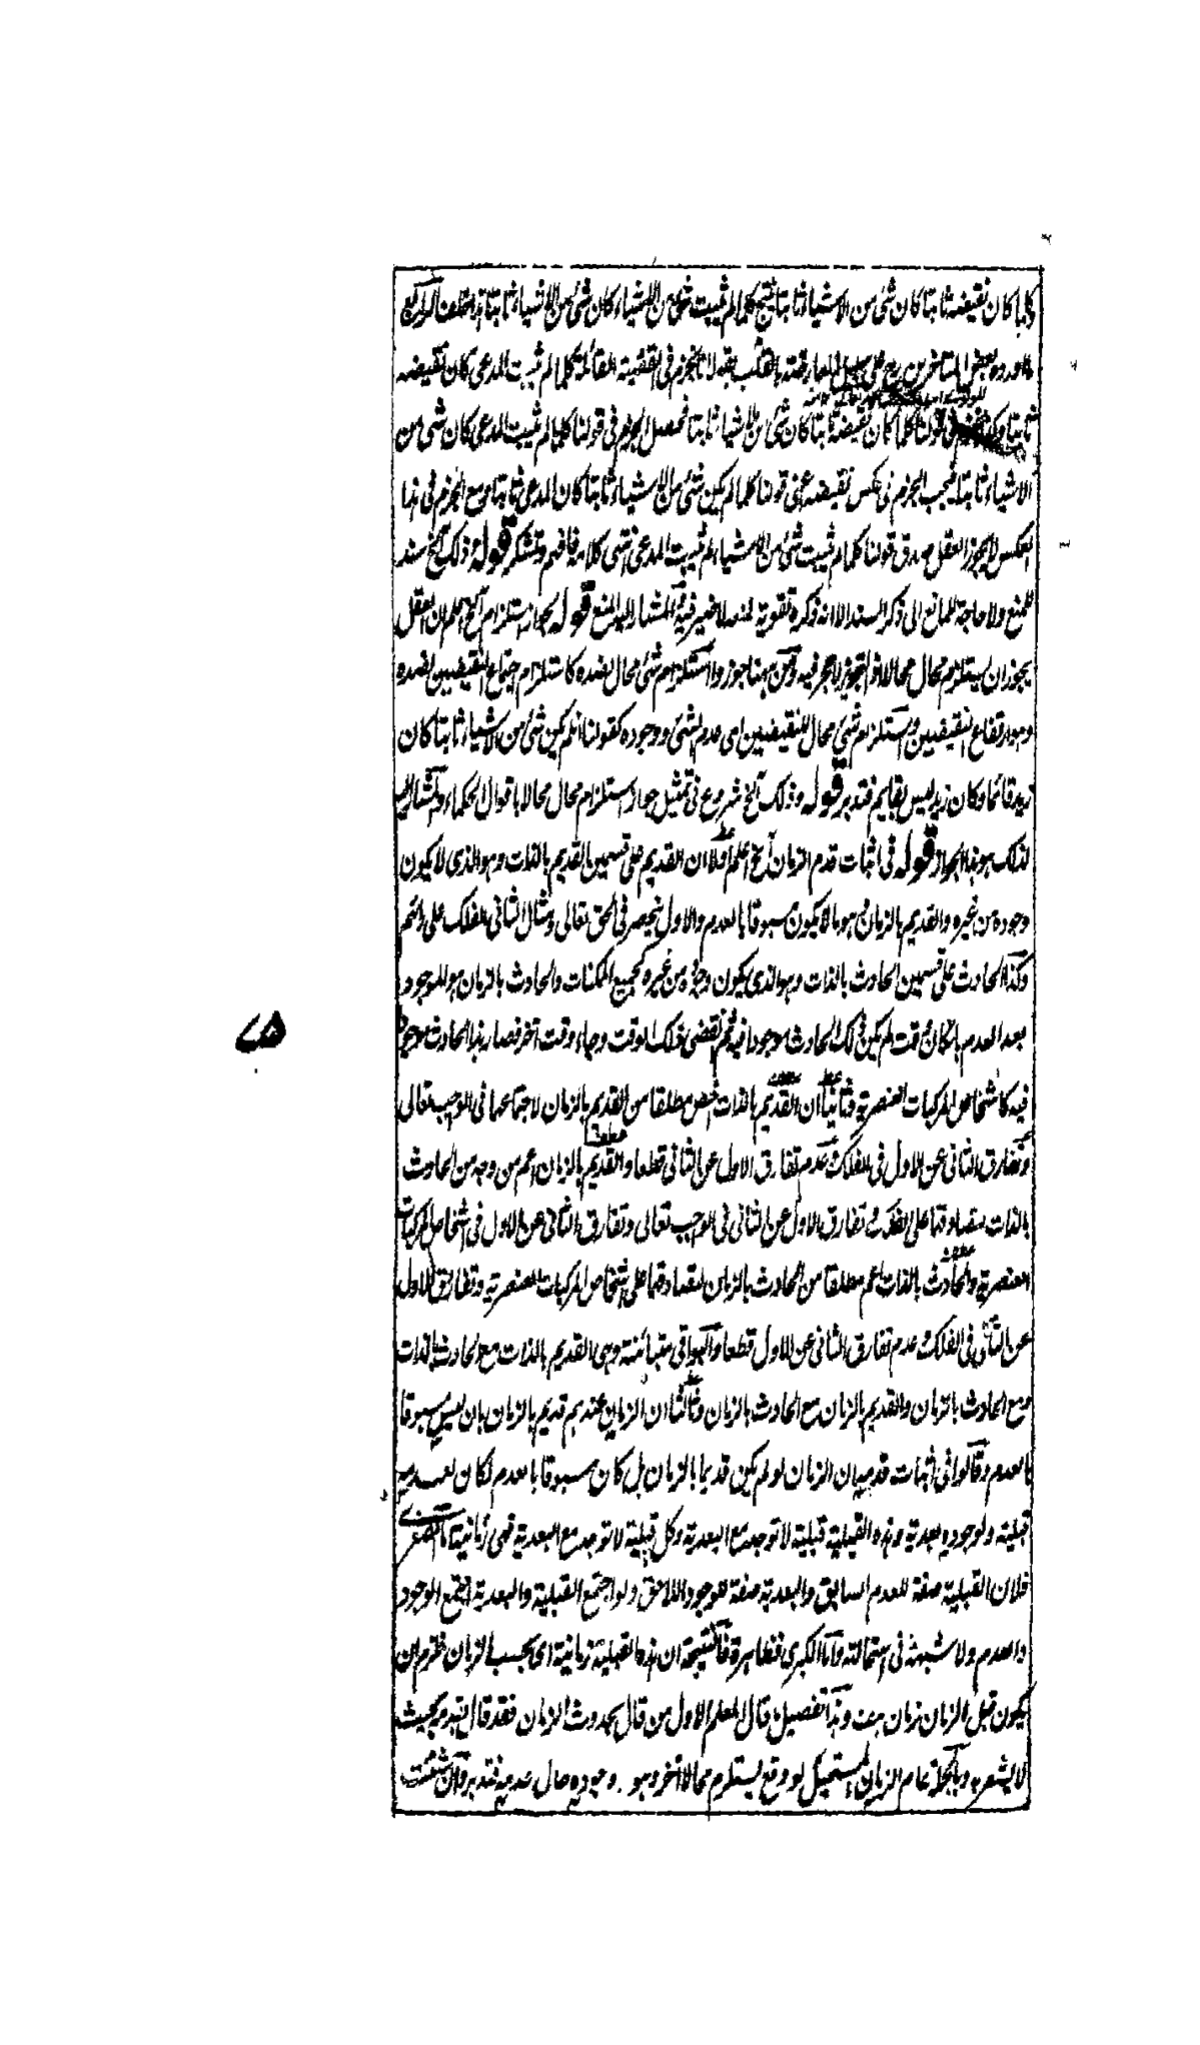 وكلما كان نقيضه ثابتا كان شئ من الاشياء ثابتا ينتج كلما لم يثبت شئ من الاشياء كان شئ من الاشياء ثابتا
بعض المتاخرين على سبيل المعارضة بالقلب بقوله لا نجزم فى القضية القائلة كلما لم يثبت المدعى كان نقيضه
ثابتا فى قولنا كلما كان نقيضه ثابتا كان شئ من الاشياء ثابتا فحصل الجزم فى قولنا كلما لم يثبت المدعى كان شئ من
الاشياء ثابتا فيجب الجزم فى عكس نقيضه اعنى قولنا كلما لم يكن شئ من الاشياء ثابتا كان المدعى ثابتا ومع الجزم فى هذا
العكس لا يجوز العقل صدق قولنا كلما لم يثبت شئ من الاشياء لم يثبت المدعى انتهى كلامه فافهم وتشكر قوله وذلك آلخ سند
للمنع ولا حاجة للمانع الى ذكر السند الا انه ذكره تقوية لمنعه لا غير فيه المشار اليه المنع قوله لجواز استلزام آلخ اعلم ان العقل
يجوز ان يستلزم محال محالا اذ التجويز لا حجر فيه ومن ههنا جوزوا استلزام شئ محال لضده كاستلزام اجتماع النقيضين لضده
وهو ارتفاع النقيضين واستلزام شئ محال للنقيضين اى عدم الشئ ووجوده كقولنا ان لم يكن شئ من الاشياء ثابتا كان
زيد قائما وكان زيد ليس بقايم فتدبر قوله وذلك آلخ شروع فى تمثيل جواز استلزام محال محالا باقوال الحكماء والمشار اليه
لذلك هو هذا الجواز قوله فى اثبات قدم الزمان آلخ اعلم اولا ان القديم على قسمين القديم بالذات وهو الذى لا يكون
وجوده من غيره والقديم بالزمان هو ما لا يكون مسبوقا بالعدم والاول ينحصر فى الحق تعالى ومثال الثانى الفلك على رائهم
وكذا الحادث على قسمين الحادث بالذات وهو الذى يكون وجوده من غيره كجميع الممكنات والحادث بالزمان هو الموجود
بعد العدم بان كان وقت لم يكن ذلك الحادث موجودا فيه ثم انقضى ذلك الوقت وجاء وقت آخر فصار هذا الحادث موجودا
فيه كاشخاص المركبات العنصرية وثانيا ان القديم بالذات اخص مطلقا من القديم بالزمان لاجتماعهما فى الواجب تعالى
وتفارق الثانى عن الاول فى الفلك وعدم تفارق الاول عن الثانى قطعا والقديم مطلقا بالزمان اعم من وجه من الحادث
بالذات لتصادقهما على الفلك وتفارق الاول عن الثانى فى الواجب تعالى وتفارق الثانى عن الاول فى اشخاص المركبات
العنصرية والحادث بالذات اعم مطلقا من الحادث بالزمان لتصادقهما على اشخاص المركبات العنصرية وتفارق الاول
عن الثانى فى الفلك وعدم تفارق الثانى عن الاول قطعا والبواقى متبائنة وهى القديم بالذات مع الحادث بالذات
ومع الحادث بالزمان والقديم بالزمان مع الحادث بالزمان وثالثا ان الزمان عندهم قديم بالزمان بان ليس مسبوقا
بالعدم وقالوا فى اثبات قدمه ان الزمان لو لم يكن قديما بالزمان بل كان مسبوقا بالعدم لكان لعدمه
قبلية ولوجوده بعدية وهذه القبلية قبلية لا توجد مع البعدية وكل قبلية لا توجد مع البعدية فهى زمانية اما الصغرى
فلان القبلية صفة للعدم السابق والبعدية صفة للوجود اللاحق ولو اجتمع القبلية والبعدية اجتمع الوجود
والعدم ولا شبهة فى استحالته واما الكبرى فظاهرة فالنتيجة ان هذه القبلية زمانية اى بحسب الزمان فلزم ان
يكون قبل الزمان زمان هف وهذا تفصيل ما قال المعلم الاول من قال بحدوث الزمان فقد قال بقدمه بحيث
لا يشعر به وبالجملة عدم الزمان المستحيل لو وقع يستلزم محالا آخر وهو وجوده حال عدمه فتدبر وان شئت